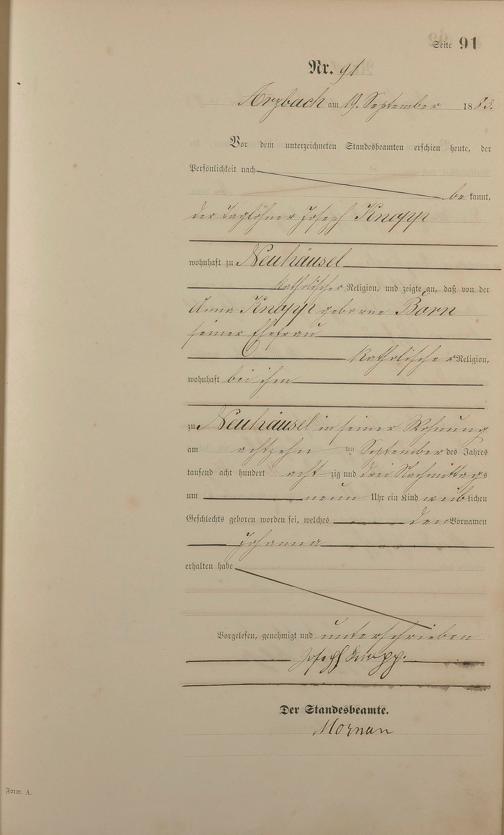 Seite 91
Nr. 91
Arzbach am 19. September 1883.
Vor dem unterzeichneten Standesbeamten erschien heute, der
Persönlichkeit nach
be kannt,
der Taglöhner Joseph Knopp
wohnhaft zu Neuhäusel
katholischer Religion, und zeigte an, daß von der
Anna Knopp geborne Born
seiner Ehefrau
katholischer Religion,
wohnhaft bei ihm
zu Neuhäusel in seiner Wohnung
am achtzehn ten September des Jahres
tausend acht hundert acht zig und drei Nachmittags
um neun Uhr ein Kind weib lichen
Geschlechts geboren worden sei, welches den Vornamen
Johanna
erhalten habe
Vorgelesen, genehmigt und unterschrieben
Joseph Knopp.
Der Standesbeamte.
Form. A.